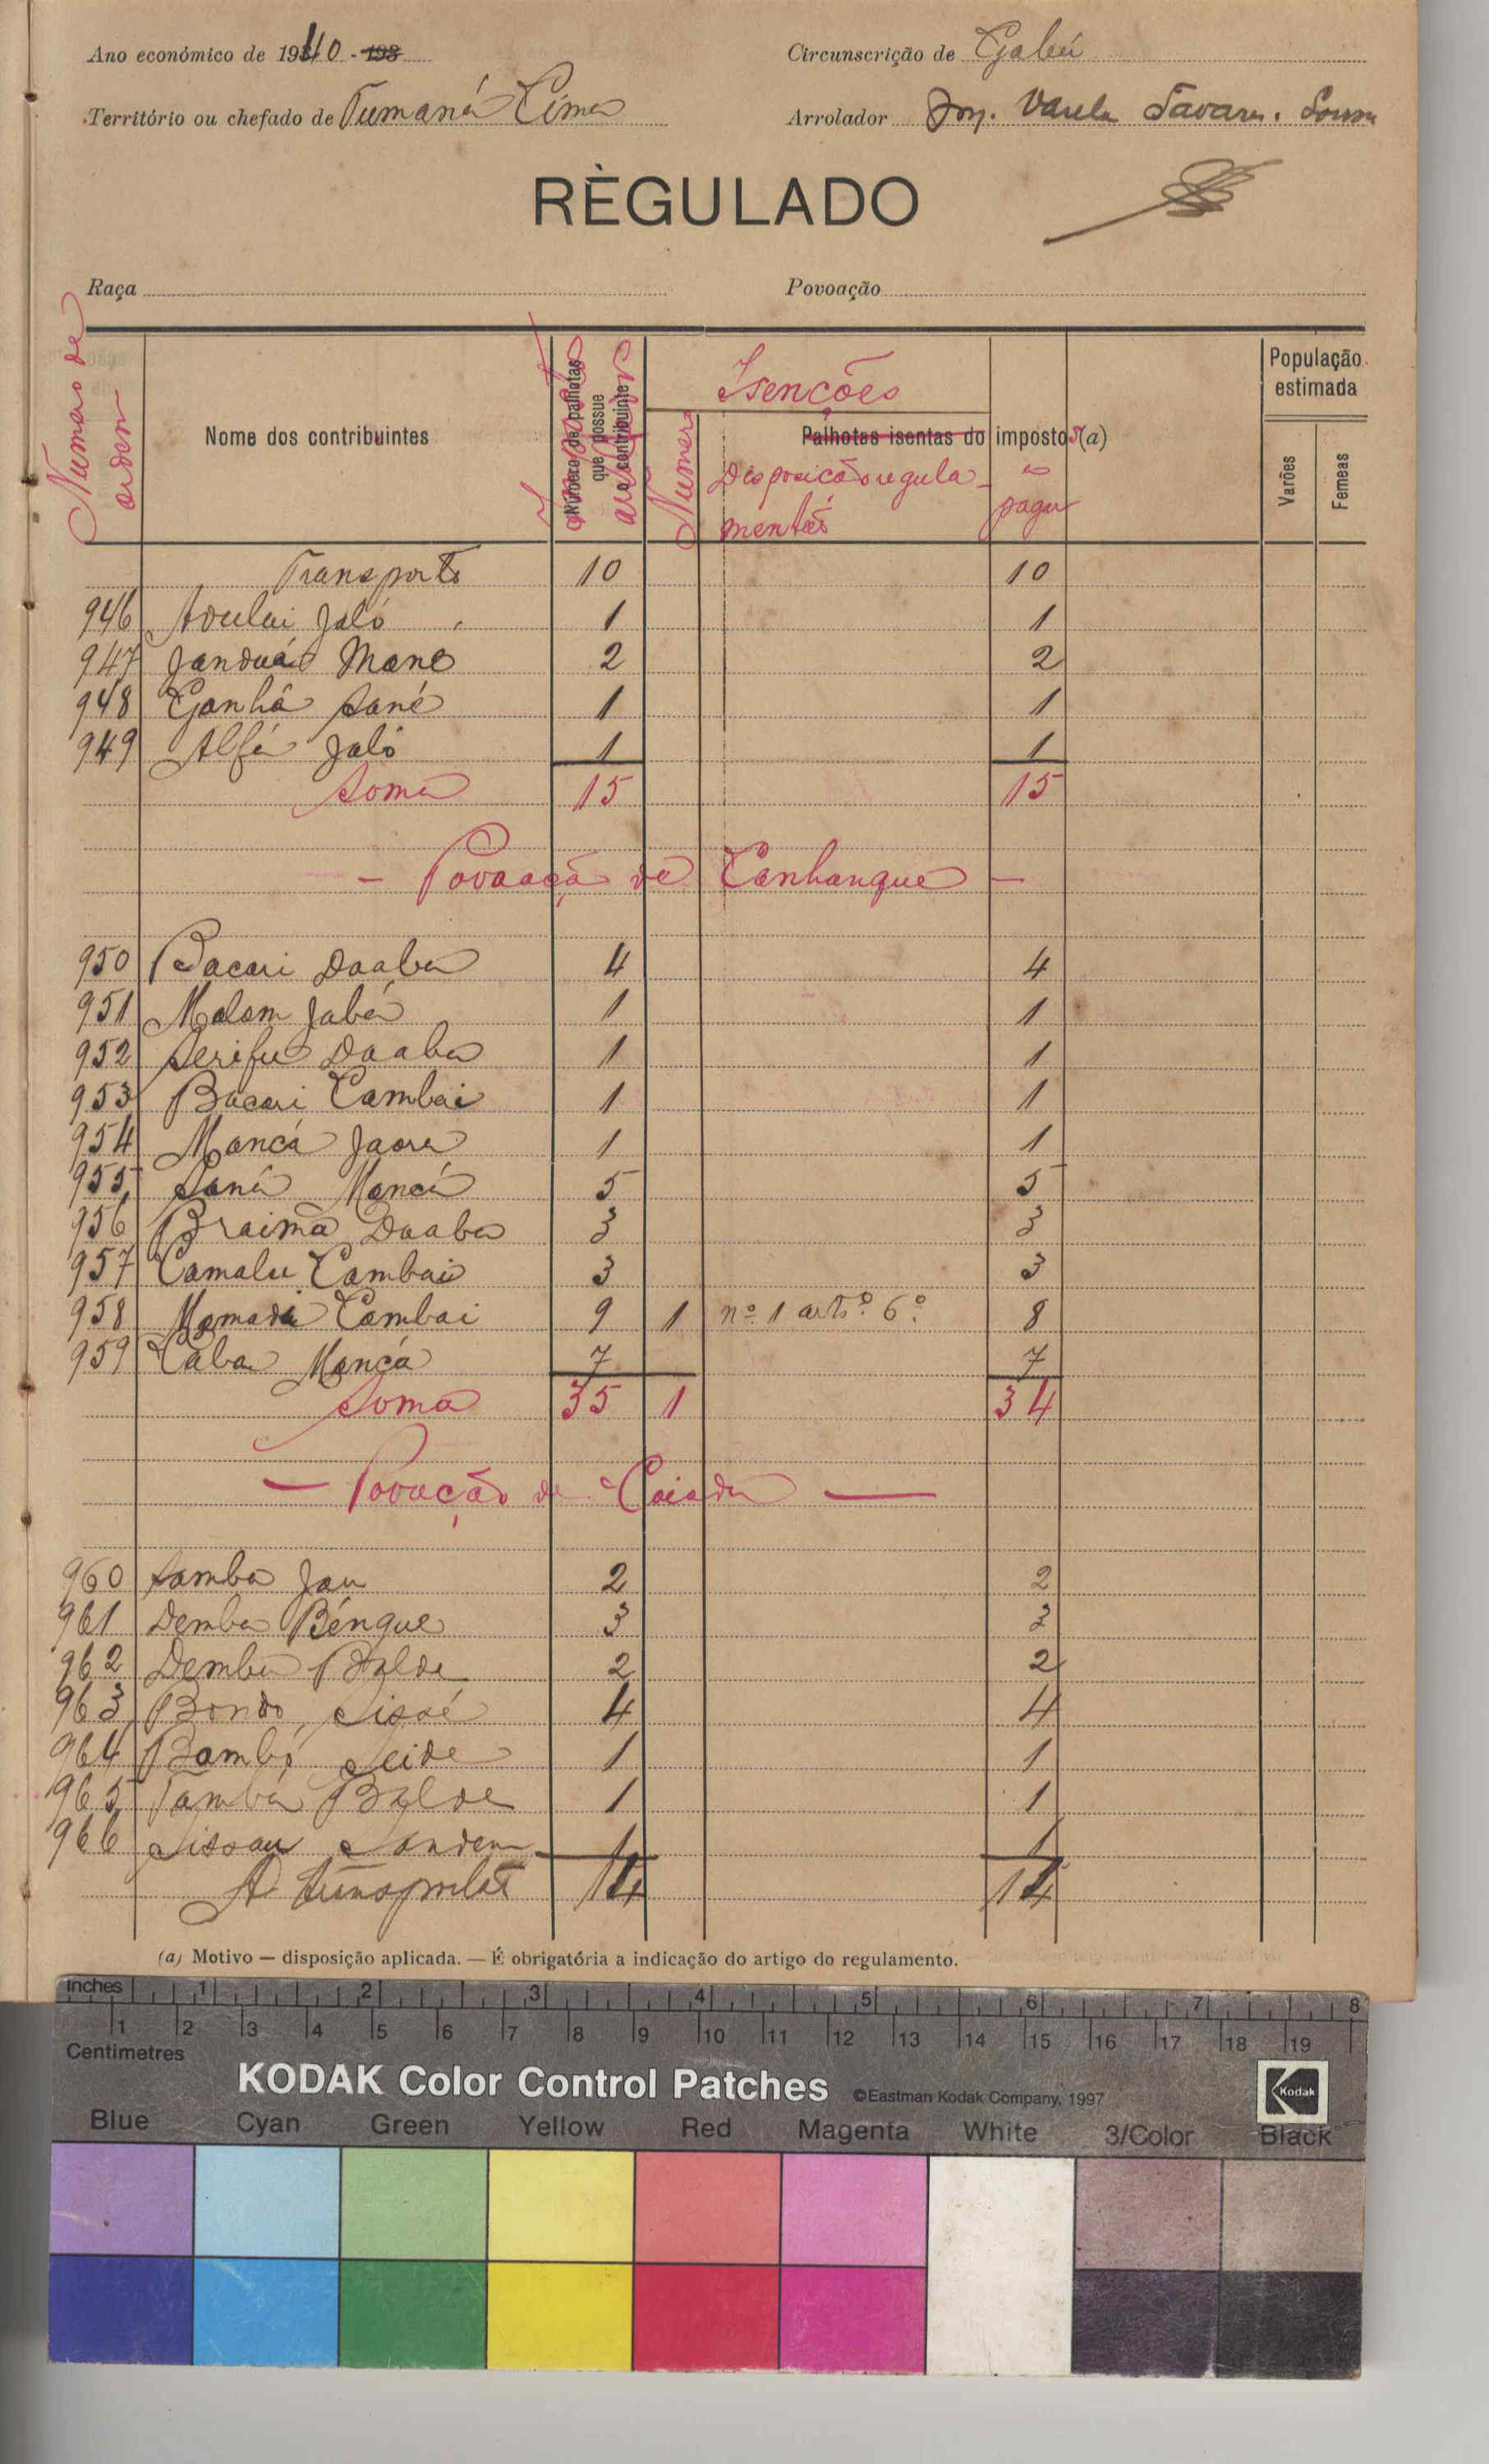 Ano económico de 1940 - 193
Circunscrição de Gabú
Território ou chefado de Tumaná Cima
Arrolador Varela Tavares Sousa
RÈGULADO
Raça
Povoação
Numero de ordem
Nome dos contribuintes
Número de palhotas que possue o contribuinte
Impostos
Isenções
Numero
Palhotas isentas do impostos (a)
Disposicão regulamentar
a pagar
População estimada
Varões
Femeas
Transporte 10 10
946 Aoulai Jaló 1 1
947 Janduá Mane 2 2
948 Ganhá Sané 1 1
949 Alfá Jaló 1 1
Soma 15 15
- Povoação de Canhanque -
950 Bacari Daaba 4 4
951 Malam Jabá 1 1
952 Serifu Daaba 1 1
953 Bacari Cambai 1 1
954 Mancá Jaora 1 1
955 Saná Mancá 5 5
956 Braima Daaba 3 3
957 Camalu Cambai 3 3
958 Mamadi Cambai 9 1 nº 1 artº 6º 8
959 Caba Mancá 7 7
Soma 35 1 34
— Povoação de —
960 Samba Jau 2 2
961 Demba Bénque 3 3
962 Demba Balde 2 2
963 Bondo Sissé 4 4
964 Bambó Seide 1 1
965 Tamba Balde 1 1
966 Sissau Sandem 1 1
A transportar 14 14
(a) Motivo — disposição aplicada. — É obrigatória a indicação do artigo do regulamento.
Inches 1 2 3 4 5 6 7 8
1 2 3 4 5 6 7 8 9 10 11 12 13 14 15 16 17 18 19
Centimetres
KODAK Color Control Patches ©Eastman Kodak Company, 1997 Kodak
Blue Cyan Green Yellow Red Magenta White 3/Color Black